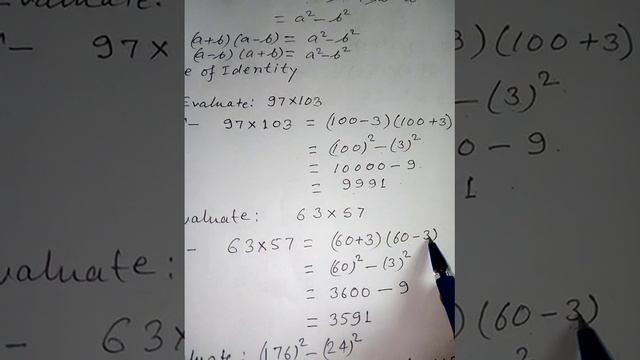 = a² - b²
(a+b)(a-b) = a² - b²
(a-b)(a+b) = a² - b²
e of Identity
Evaluate: 97×103
- 97×103 = (100-3)(100+3)
= (100)² - (3)²
= 10000 - 9
= 9991
valuate: 63×57
- 63×57 = (60+3)(60-3)
= (60)² - (3)²
= 3600 - 9
= 3591
(176)² - (24)²